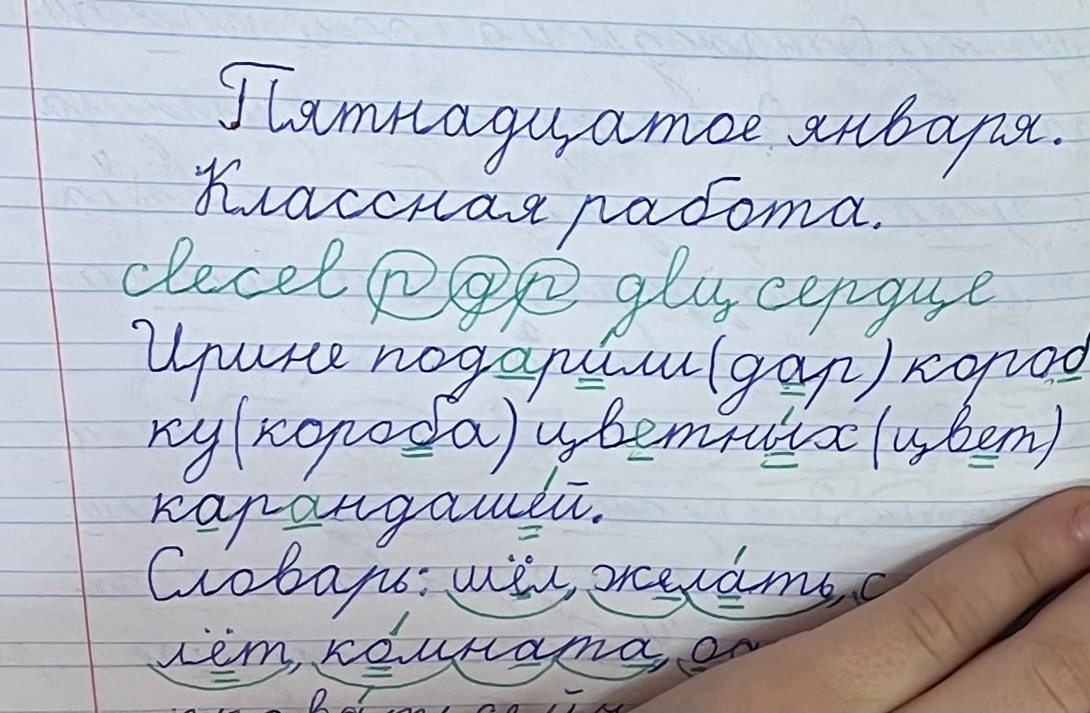 Пятнадцатое января.
Классная работа.
р д р сердце
Ирине подарили (дар) короб
ку (короба) цветных (цвет)
карандашей.
Словарь: шёл, желать, с
лёт, комната,